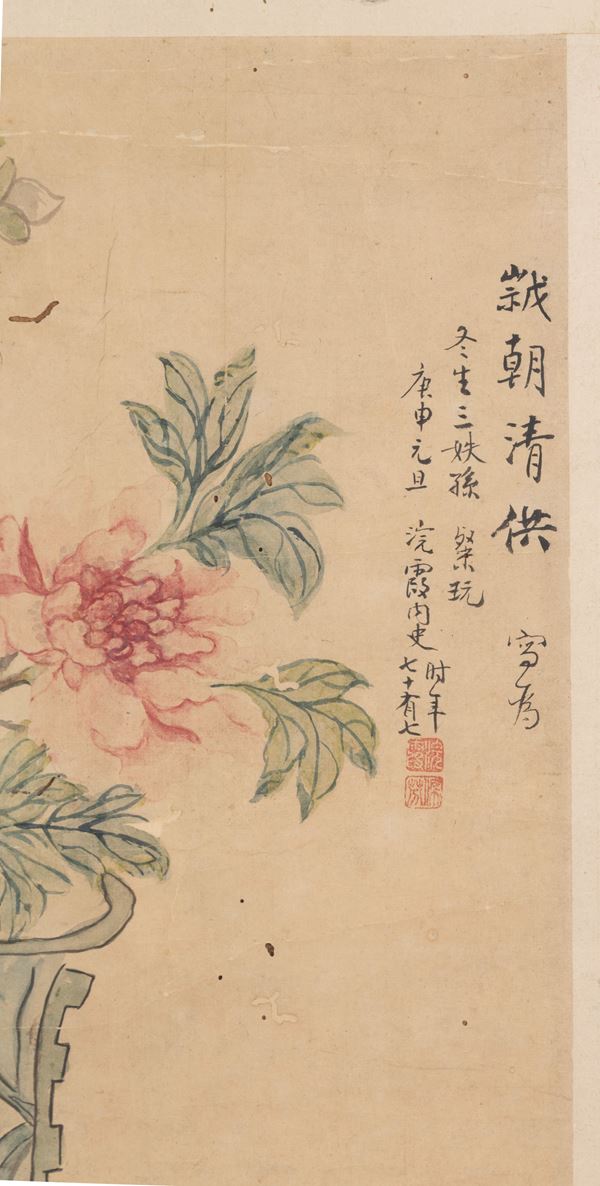 歲朝清供 寫為
冬生三妷孫 粲玩
庚申元旦 浣霞内史 时年七十有七